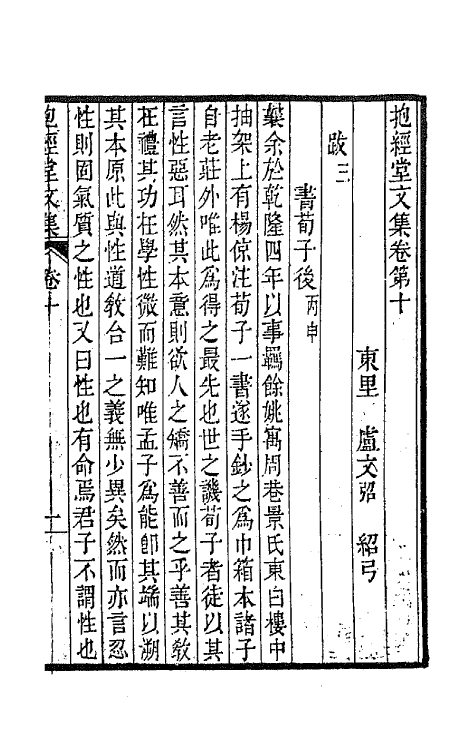 抱經堂文集卷第十
東里 盧文弨 紹弓
跋三
書荀子後丙申
曩余於乾隆四年以事羈餘姚寓周巷景氏東白樓中
抽架上有楊倞注荀子一書遂手鈔之爲巾箱本諸子
自老莊外唯此爲得之最先也世之譏荀子者徒以其
言性惡耳然其本意則欲人之矯不善而之乎善其敎
在禮其功在學性微而難知唯孟子爲能卽其端以溯
其本原此與性道敎合一之義無少異矣然而亦言忍
性則固氣質之性也又曰性也有命焉君子不謂性也
抱經堂文集 卷十 一